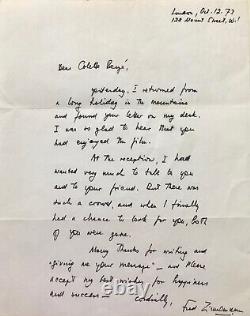 London, Oct. 12. 73
128 Mount Street, W.1
Dear Colette Bergé,
yesterday, I returned from
a long holiday in the mountains
and found your letter on my desk.
I was so glad to hear that you
had enjoyed the film.
At the reception, I had
wanted very much to talk to you
and to your friend. But there was
such a crowd, and when I finally
had a chance to look for you, both
of you were gone.
Many thanks for writing and
"giving me your message" — and please
accept my best wishes for happiness
and success —
Cordially,
Fred Zinnemann